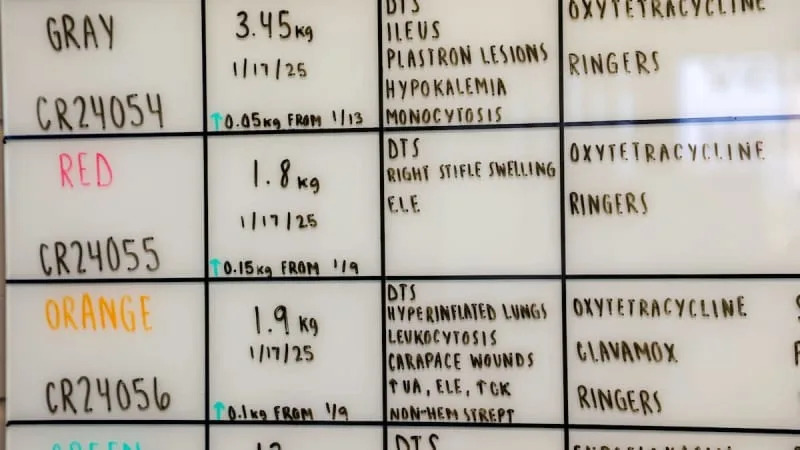 GRAY
CR24054
3.45kg
1/17/25
↑0.05kg FROM 1/13
DTS
ILEUS
PLASTRON LESIONS
HYPOKALEMIA
MONOCYTOSIS
OXYTETRACYCLINE
RINGERS
RED
CR24055
1.8kg
1/17/25
↑0.15kg FROM 1/9
DTS
RIGHT STIFLE SWELLING
ELE
OXYTETRACYCLINE
RINGERS
ORANGE
CR24056
1.9 kg
1/17/25
↑0.1kg FROM 1/9
DTS
HYPERINFLATED LUNGS
LEUKOCYTOSIS
CARAPACE WOUNDS
↑UA, ELE, ↑CK
NON-HEM STREPT
OXYTETRACYCLINE
CLAVAMOX
RINGERS
GREEN
DTS